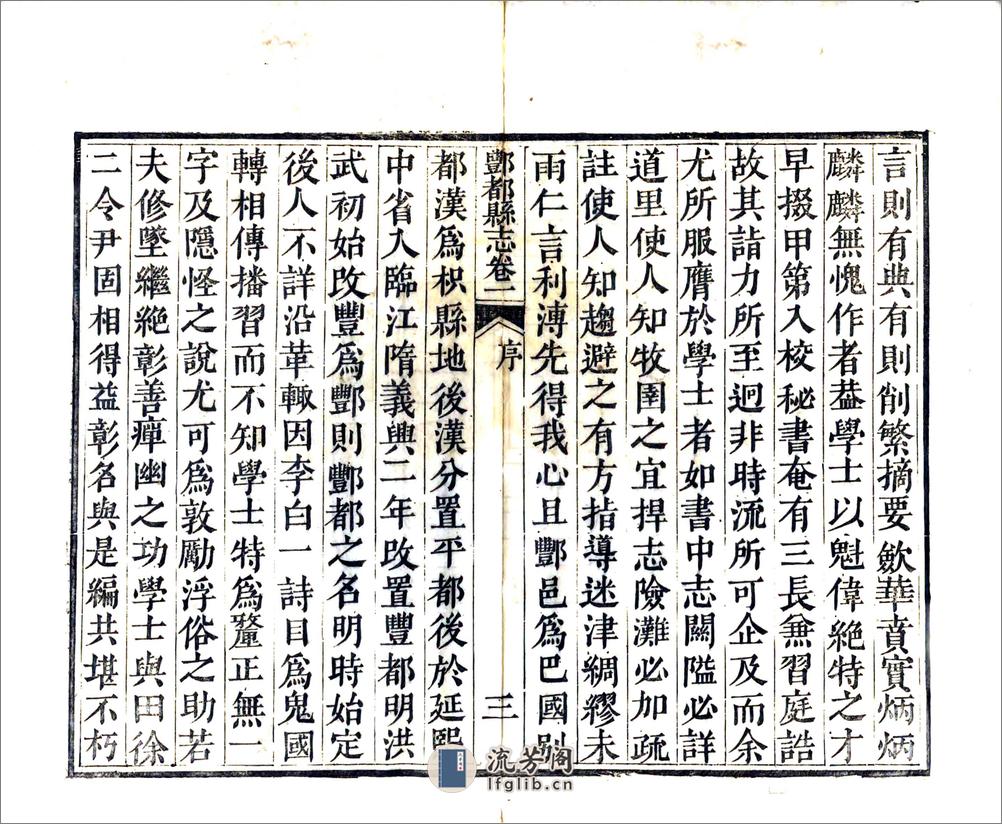 言則有典有則削繁摘要斂華賁實炳炳
麟麟無愧作者葢學士以魁偉絶特之才
早掇甲第入校秘書奄有三長兼習庭誥
故其詣力所至迥非時流所可企及而余
尤所服膺於學士者如書中志關隘必詳
道里使人知牧圉之宜捍志險灘必加疏
註使人知趨避之有方指導迷津綢繆未
雨仁言利溥先得我心且酆邑爲巴國别
酆都縣志卷一 序 三
都漢爲枳縣地後漢分置平都後於延熙
中省入臨江隋義興二年改置豐都明洪
武初始改豐爲酆則酆都之名明時始定
後人不詳沿革輙因李白一詩目爲鬼國
轉相傳播習而不知學士特爲釐正無一
字及隱怪之說尤可爲敦勵浮俗之助若
夫修墜繼絶彰善癉幽之功學士與田徐
二令尹固相得益彰名與是編共堪不朽
流芳阁
lfglib.cn